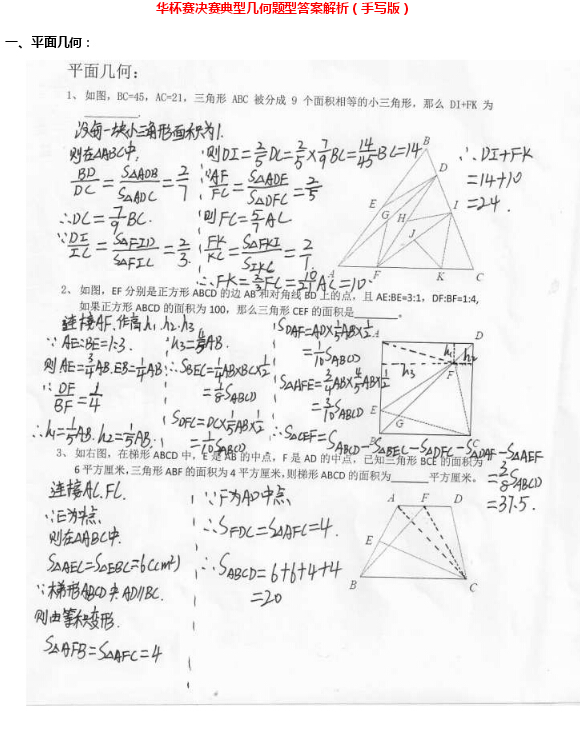 华杯赛决赛典型几何题型答案解析（手写版）
一、平面几何：
平面几何：
1、 如图，BC=45，AC=21，三角形 ABC 被分成 9 个面积相等的小三角形，那么 DI+FK 为
________。
设每一块小三角形面积为1.
则在△ABC中,
BD/DC = S△ADB/S△ADC = 2/7
∴DC = 7/9 BC.
∵DI/IC = S△FID/S△FIC = 2/3.
则DI = 2/5 DC = 2/5 × 7/9 BC = 14/45 BC = 14
∵AF/FC = S△ADF/S△DFC = 2/5
则FC = 5/7 AC
FK/KC = S△FKI/S△IKC = 2/1
∴FK = 2/3 FC = 10/21 AC = 10
∴DI+FK
=14+10
=24.
B
D
E
G
H
I
J
A
F
K
C
2、 如图，EF 分别是正方形 ABCD 的边 AB 和对角线 BD 上的点，且 AE:BE=3:1，DF:BF=1:4,
如果正方形 ABCD 的面积为 100，那么三角形 CEF 的面积是________。
连接AF.作高h1.h2.h3
∵AE:BE=1:3.
则AE=3/4AB.EB=1/4AB
∵DF/BF = 1/4
∴h1=1/5AB.h2=1/5AB.
h3=4/5AB.
∴S△BEC=1/4AB×BC×1/2
=1/8S▱ABCD
S△DFC=DC×1/5AB×1/2
=1/10S▱ABCD
S△DAF=AD×1/5AB×1/2
=1/10S▱ABCD
S△AFE=3/4AB×4/5AB×1/2
=3/10S▱ABCD
∴S△CEF=S▱ABCD-S△BEC-S△DFC-S△DAF-S△AEF
=3/8S▱ABCD
=37.5.
A
D
h1
h2
h3
F
E
G
B
C
3、 如右图，在梯形 ABCD 中，E 是 AB 的中点，F 是 AD 的中点，已知三角形 BCE 的面积为
6 平方厘米，三角形 ABF 的面积为 4 平方厘米，则梯形 ABCD 的面积为______平方厘米。
连接AC.FC.
∵E为中点
则在△ABC中.
S△AEC=S△EBC=6(cm²)
∵梯形ABCD中AD//BC.
则由等积变形.
S△AFB=S△AFC=4
∵F为AD中点
∴SFDC=S△AFC=4.
∴SABCD=6+6+4+4
=20
A
F
D
E
B
C